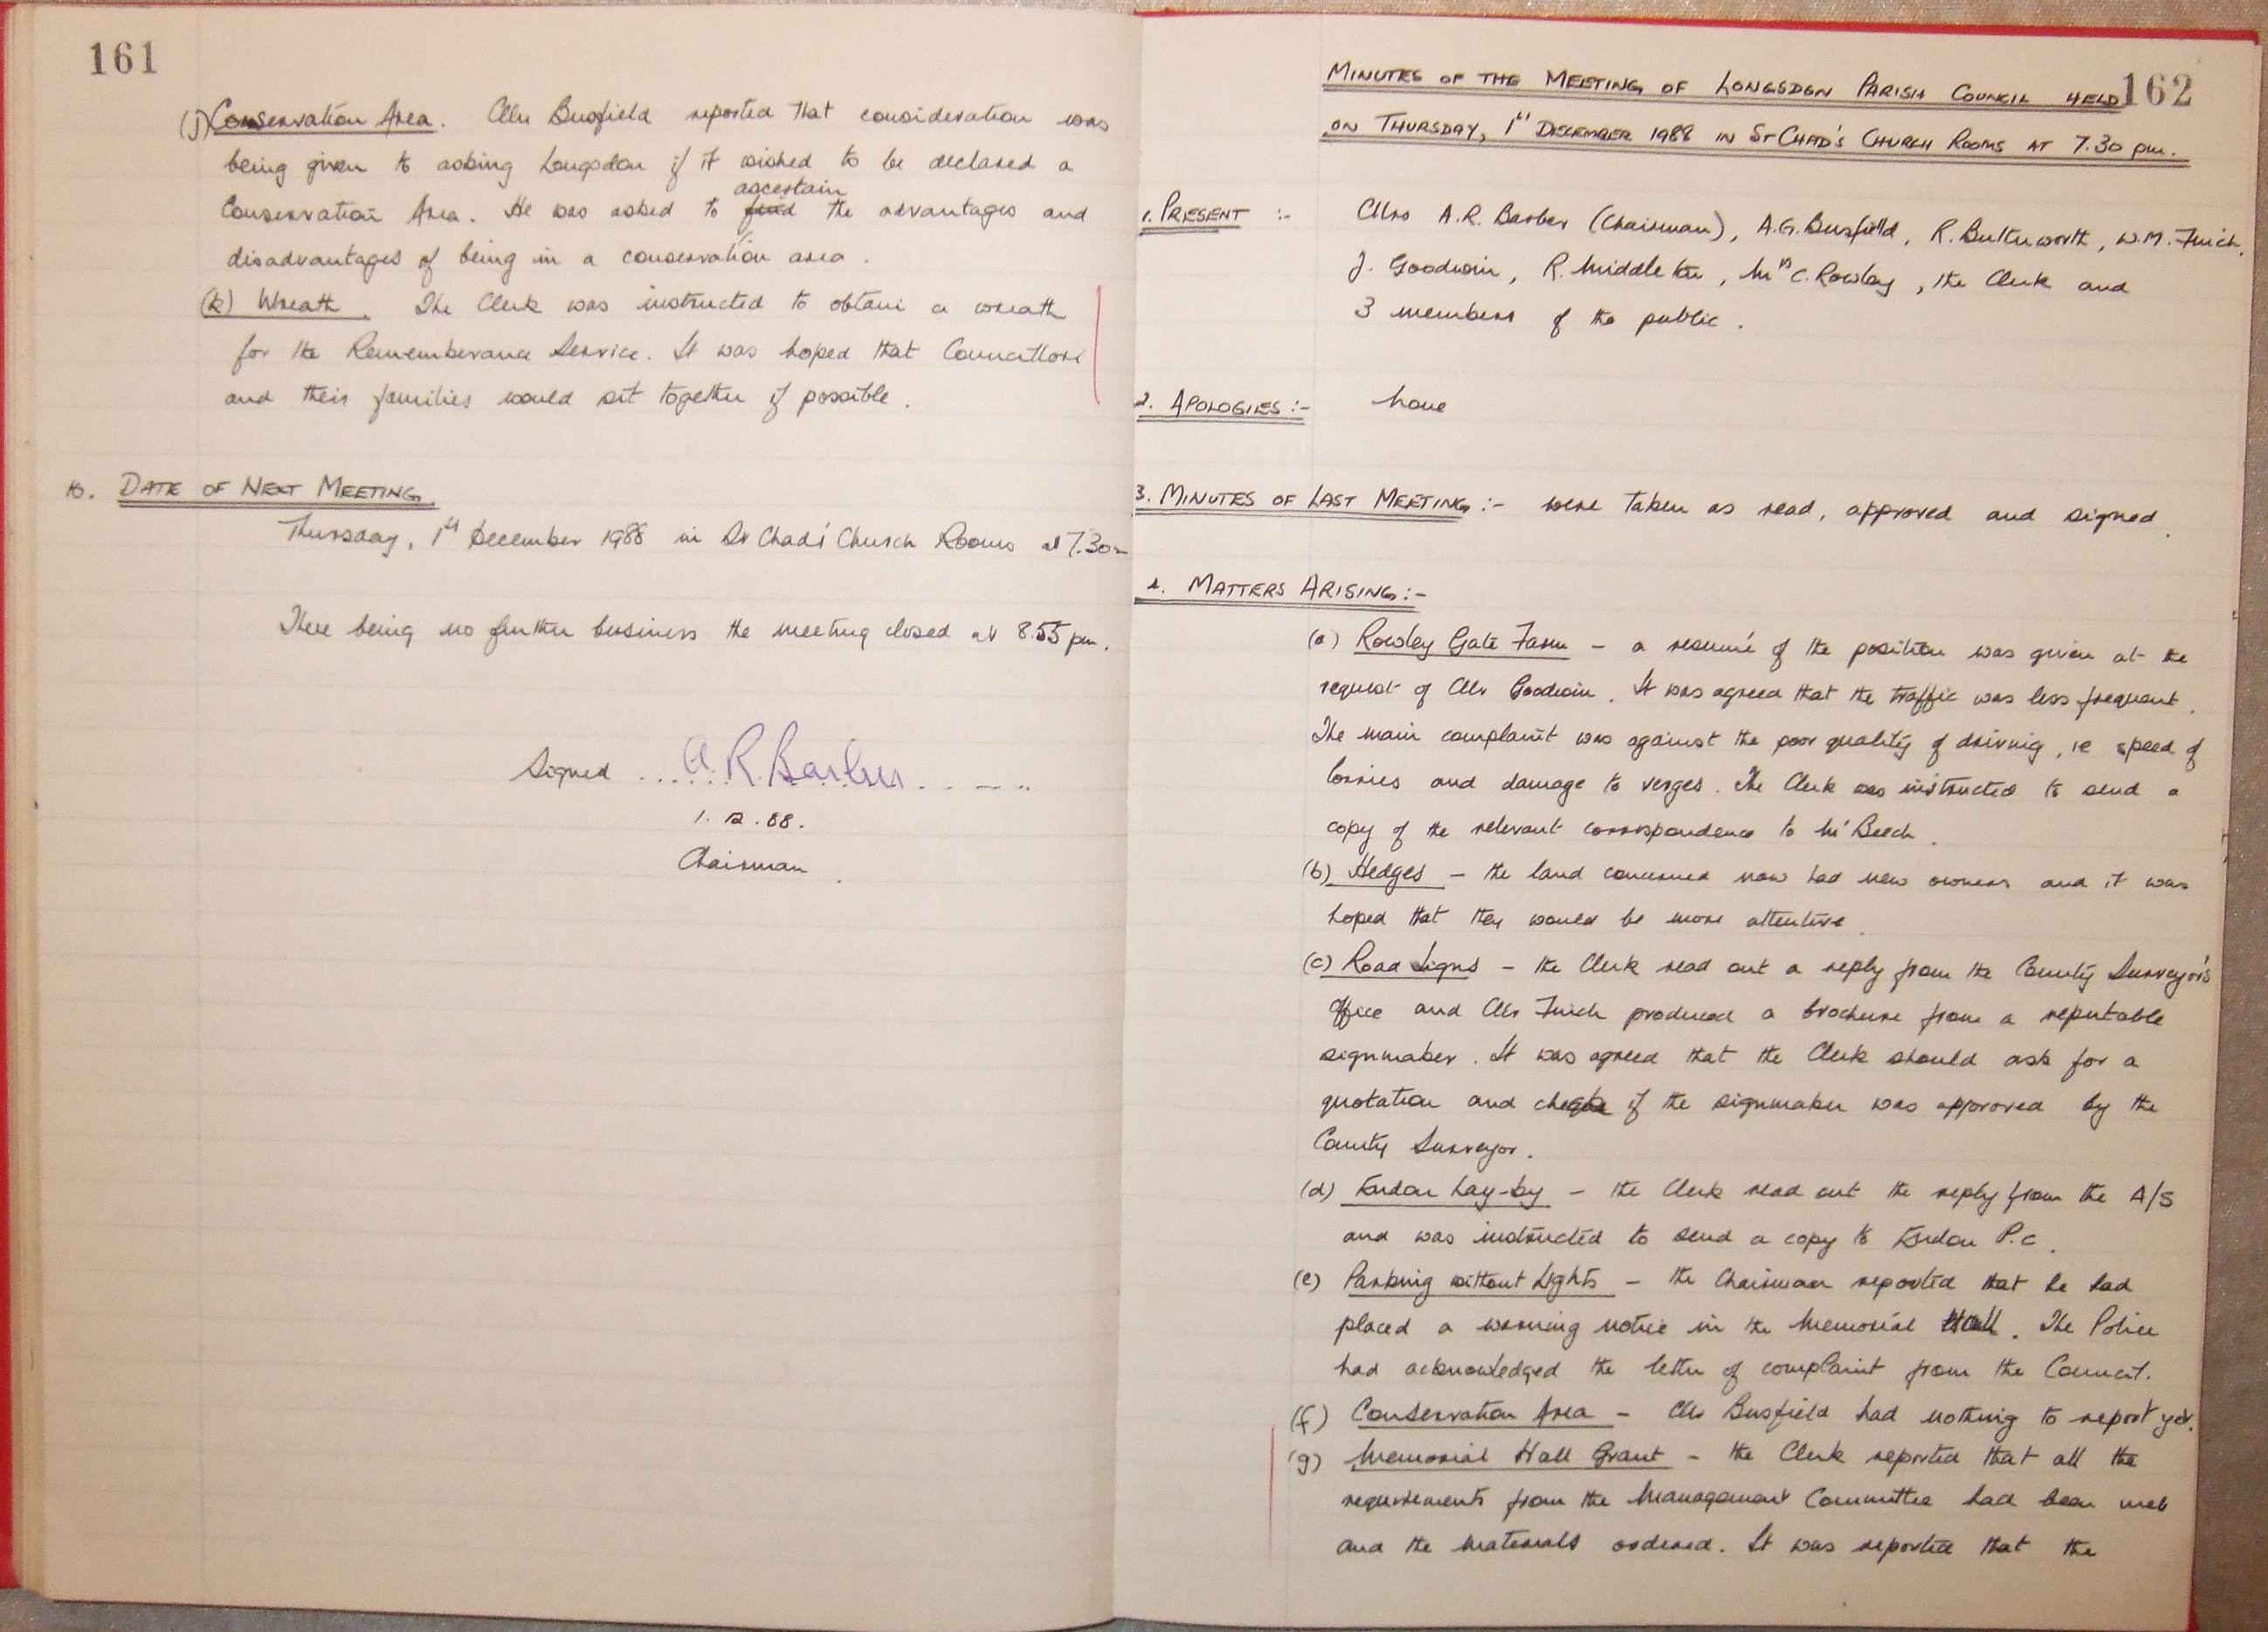 161
(j) Conservation Area. Cllr Busfield reported that consideration was
being given to asking Longsdon if it wished to be declared a
ascertain
Conservation Area. He was asked to find the advantages and
disadvantages of being in a conservation area.
(k) Wreath. The Clerk was instructed to obtain a wreath
for the Rememberance Service. It was hoped that Councillors
and their families would sit together if possible.
10. DATE OF NEXT MEETING
Thursday, 1st December 1988 in St Chad's Church Rooms at 7.30
There being no further business the meeting closed at 8.55 pm.
Signed ... A.R. Barber ...
1. 12. 88.
Chairman.
162
MINUTES OF THE MEETING OF LONGSDON PARISH COUNCIL HELD
ON THURSDAY, 1st DECEMBER 1988 IN ST CHAD'S CHURCH ROOMS AT 7.30 pm.
1. PRESENT :- Cllrs A.R. Barber (Chairman), A.G. Busfield, R. Butterworth, W.M. Finch,
J. Goodwin, R. Middleton, Mrs C. Rowley, the Clerk and
3 members of the public.
2. APOLOGIES :- None
3. MINUTES OF LAST MEETING :- were taken as read, approved and signed.
4. MATTERS ARISING :-
(a) Rowley Gate Farm - a resumé of the position was given at the
request of Cllr Goodwin. It was agreed that the traffic was less frequent.
The main complaint was against the poor quality of driving, ie speed of
lorries and damage to verges. The Clerk was instructed to send a
copy of the relevant correspondence to Mr Beech.
(b) Hedges - the land concerned now had new owners and it was
hoped that they would be more attentive.
(c) Road Signs - the Clerk read out a reply from the County Surveyor's
Office and Cllr Finch produced a brochure from a reputable
signmaker. It was agreed that the Clerk should ask for a
quotation and check if the signmaker was approved by the
County Surveyor.
(d) Endon Lay-by - the Clerk read out the reply from the A/S
and was instructed to send a copy to Endon P.C.
(e) Parking without Lights - the Chairman reported that he had
placed a warning notice in the Memorial Hall. The Police
had acknowledged the letter of complaint from the Council.
(f) Conservation Area - Cllr Busfield had nothing to report yet.
(g) Memorial Hall Grant - the Clerk reported that all the
requirements from the Management Committee had been met
and the materials ordered. It was reported that the